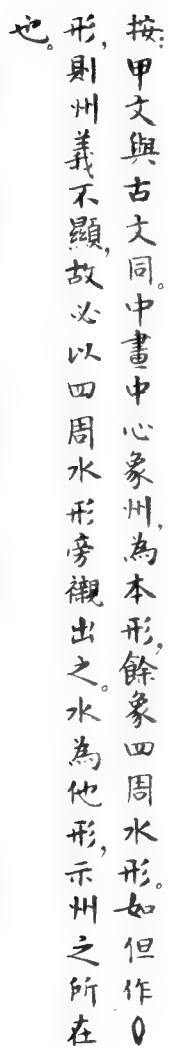 按：甲文與古文同。中畫中心象州，為本形，餘象四周水形。如但作〇
形，則州義不顯，故必以四周水形旁襯出之。水為他形，示州之所在
也。